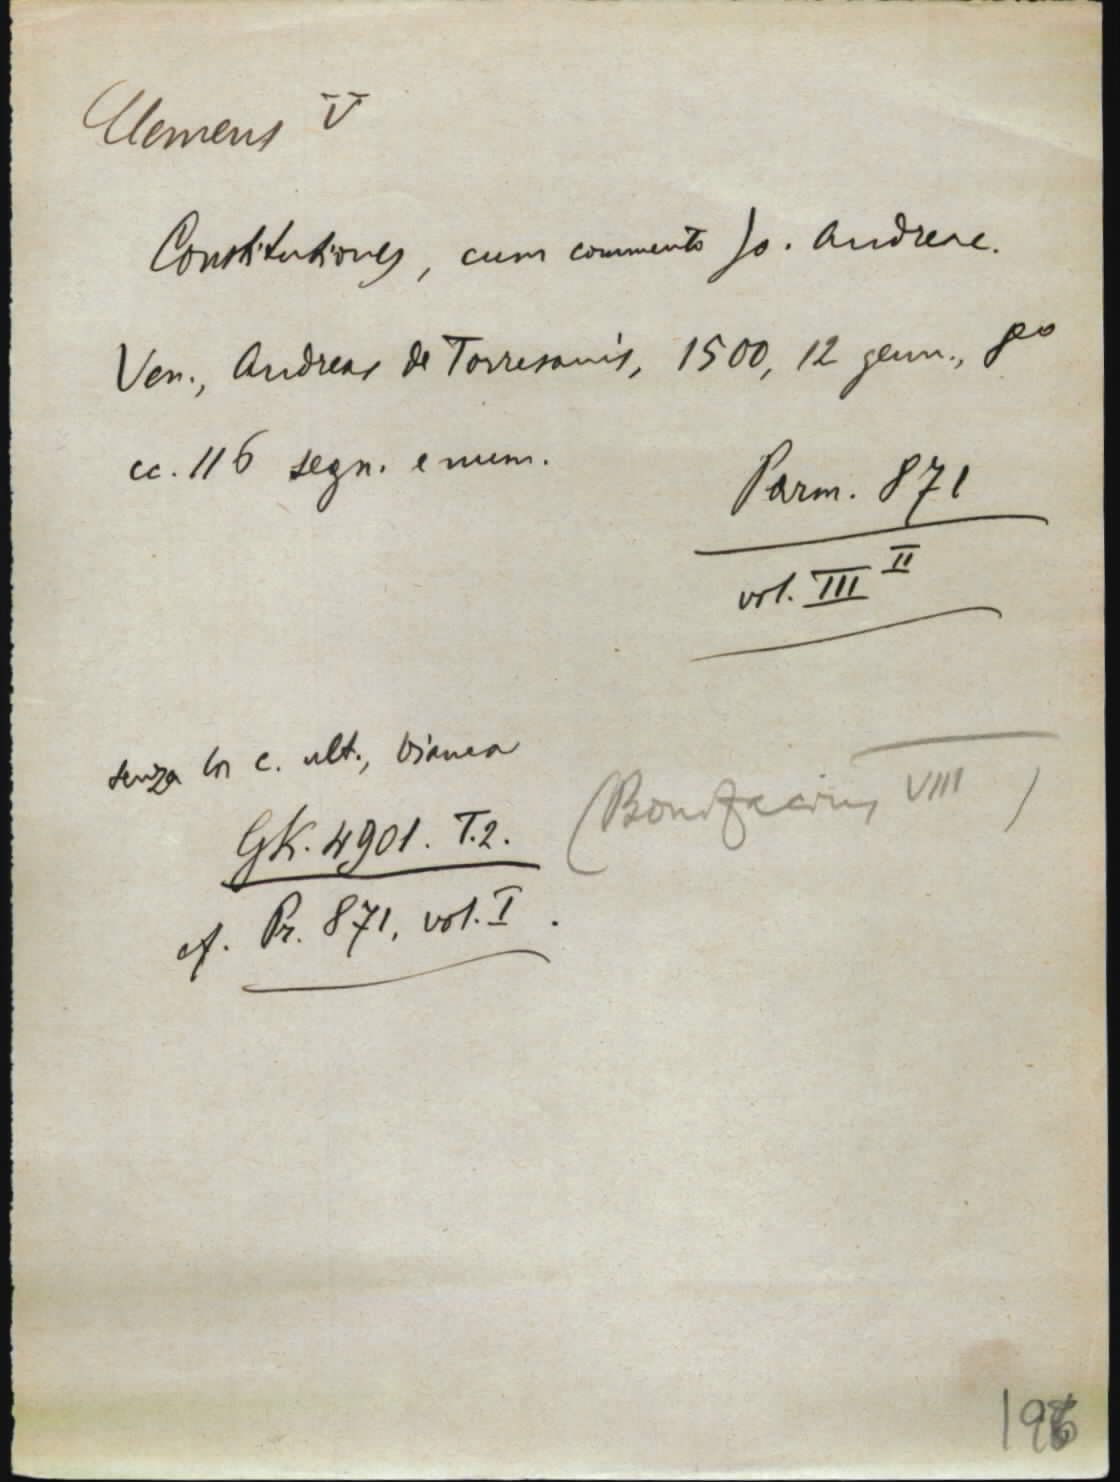 Clemens V
Constitutiones, cum commento Jo. Andreae.
Ven., Andreas de Torresanis, 1500, 12 genn., 8º
cc. 116 segn. e num.
Parm. 871
vol. III II
senza la c. ult., bianca
(Bonifacius VIII)
GK. 4901. T.2.
cf. Pr. 871, vol. I.